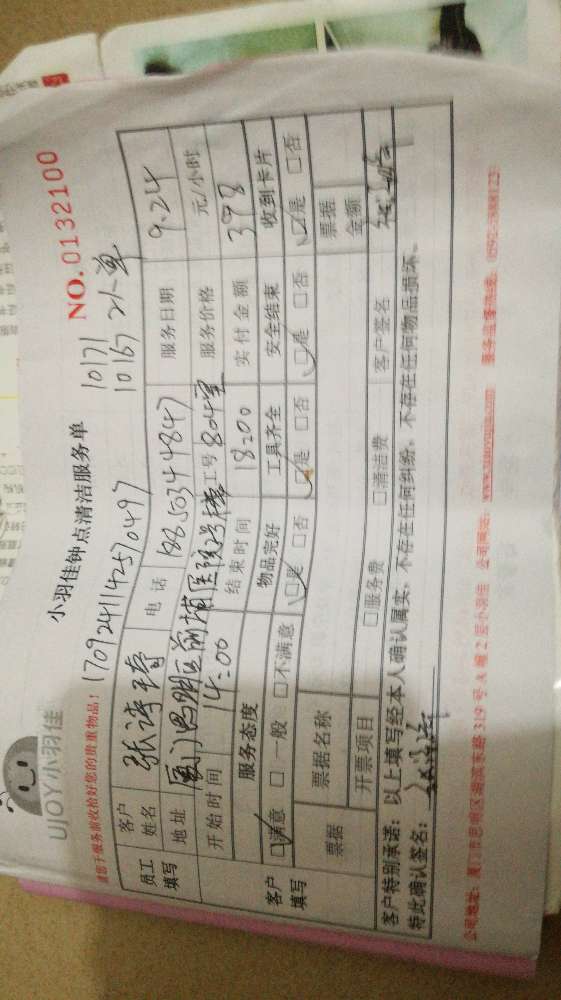 UJOY小羽佳
小羽佳钟点清洁服务单
NO.0132100
请您于服务前收拾好您的贵重物品!
1709241142570497
10171
10167 2人单
员工填写
客户姓名 张诗琦 电话 18850344847 服务日期 9.24
地址 厦门思明区前埔医院2号楼804室 工号 服务价格 元/小时
开始时间 14:00 结束时间 18:00 实付金额 398
客户填写
服务态度 物品完好 工具齐全 安全结束 收到卡片
☑满意 □一般 □不满意 ☑是 □否 ☑是 □否 ☑是 □否 ☑是 □否
票据 票据名称 票据金额
开票项目 □服务费 □清洁费 客户签名
客户特别承诺:以上填写经本人确认属实,不存在任何纠纷,不存在任何物品损坏。
特此确认签名:
公司地址:厦门市思明区湖滨东路319号A幢2层小羽佳 公司网站:www.xiaoyujia.com 服务监督热线:0592-2888123